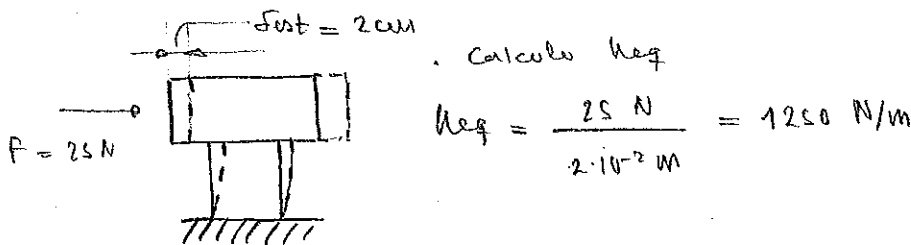 δest = 2 cm
. Calculo keq
F = 25 N
keq = 25 N / 2·10⁻² m = 1250 N/m